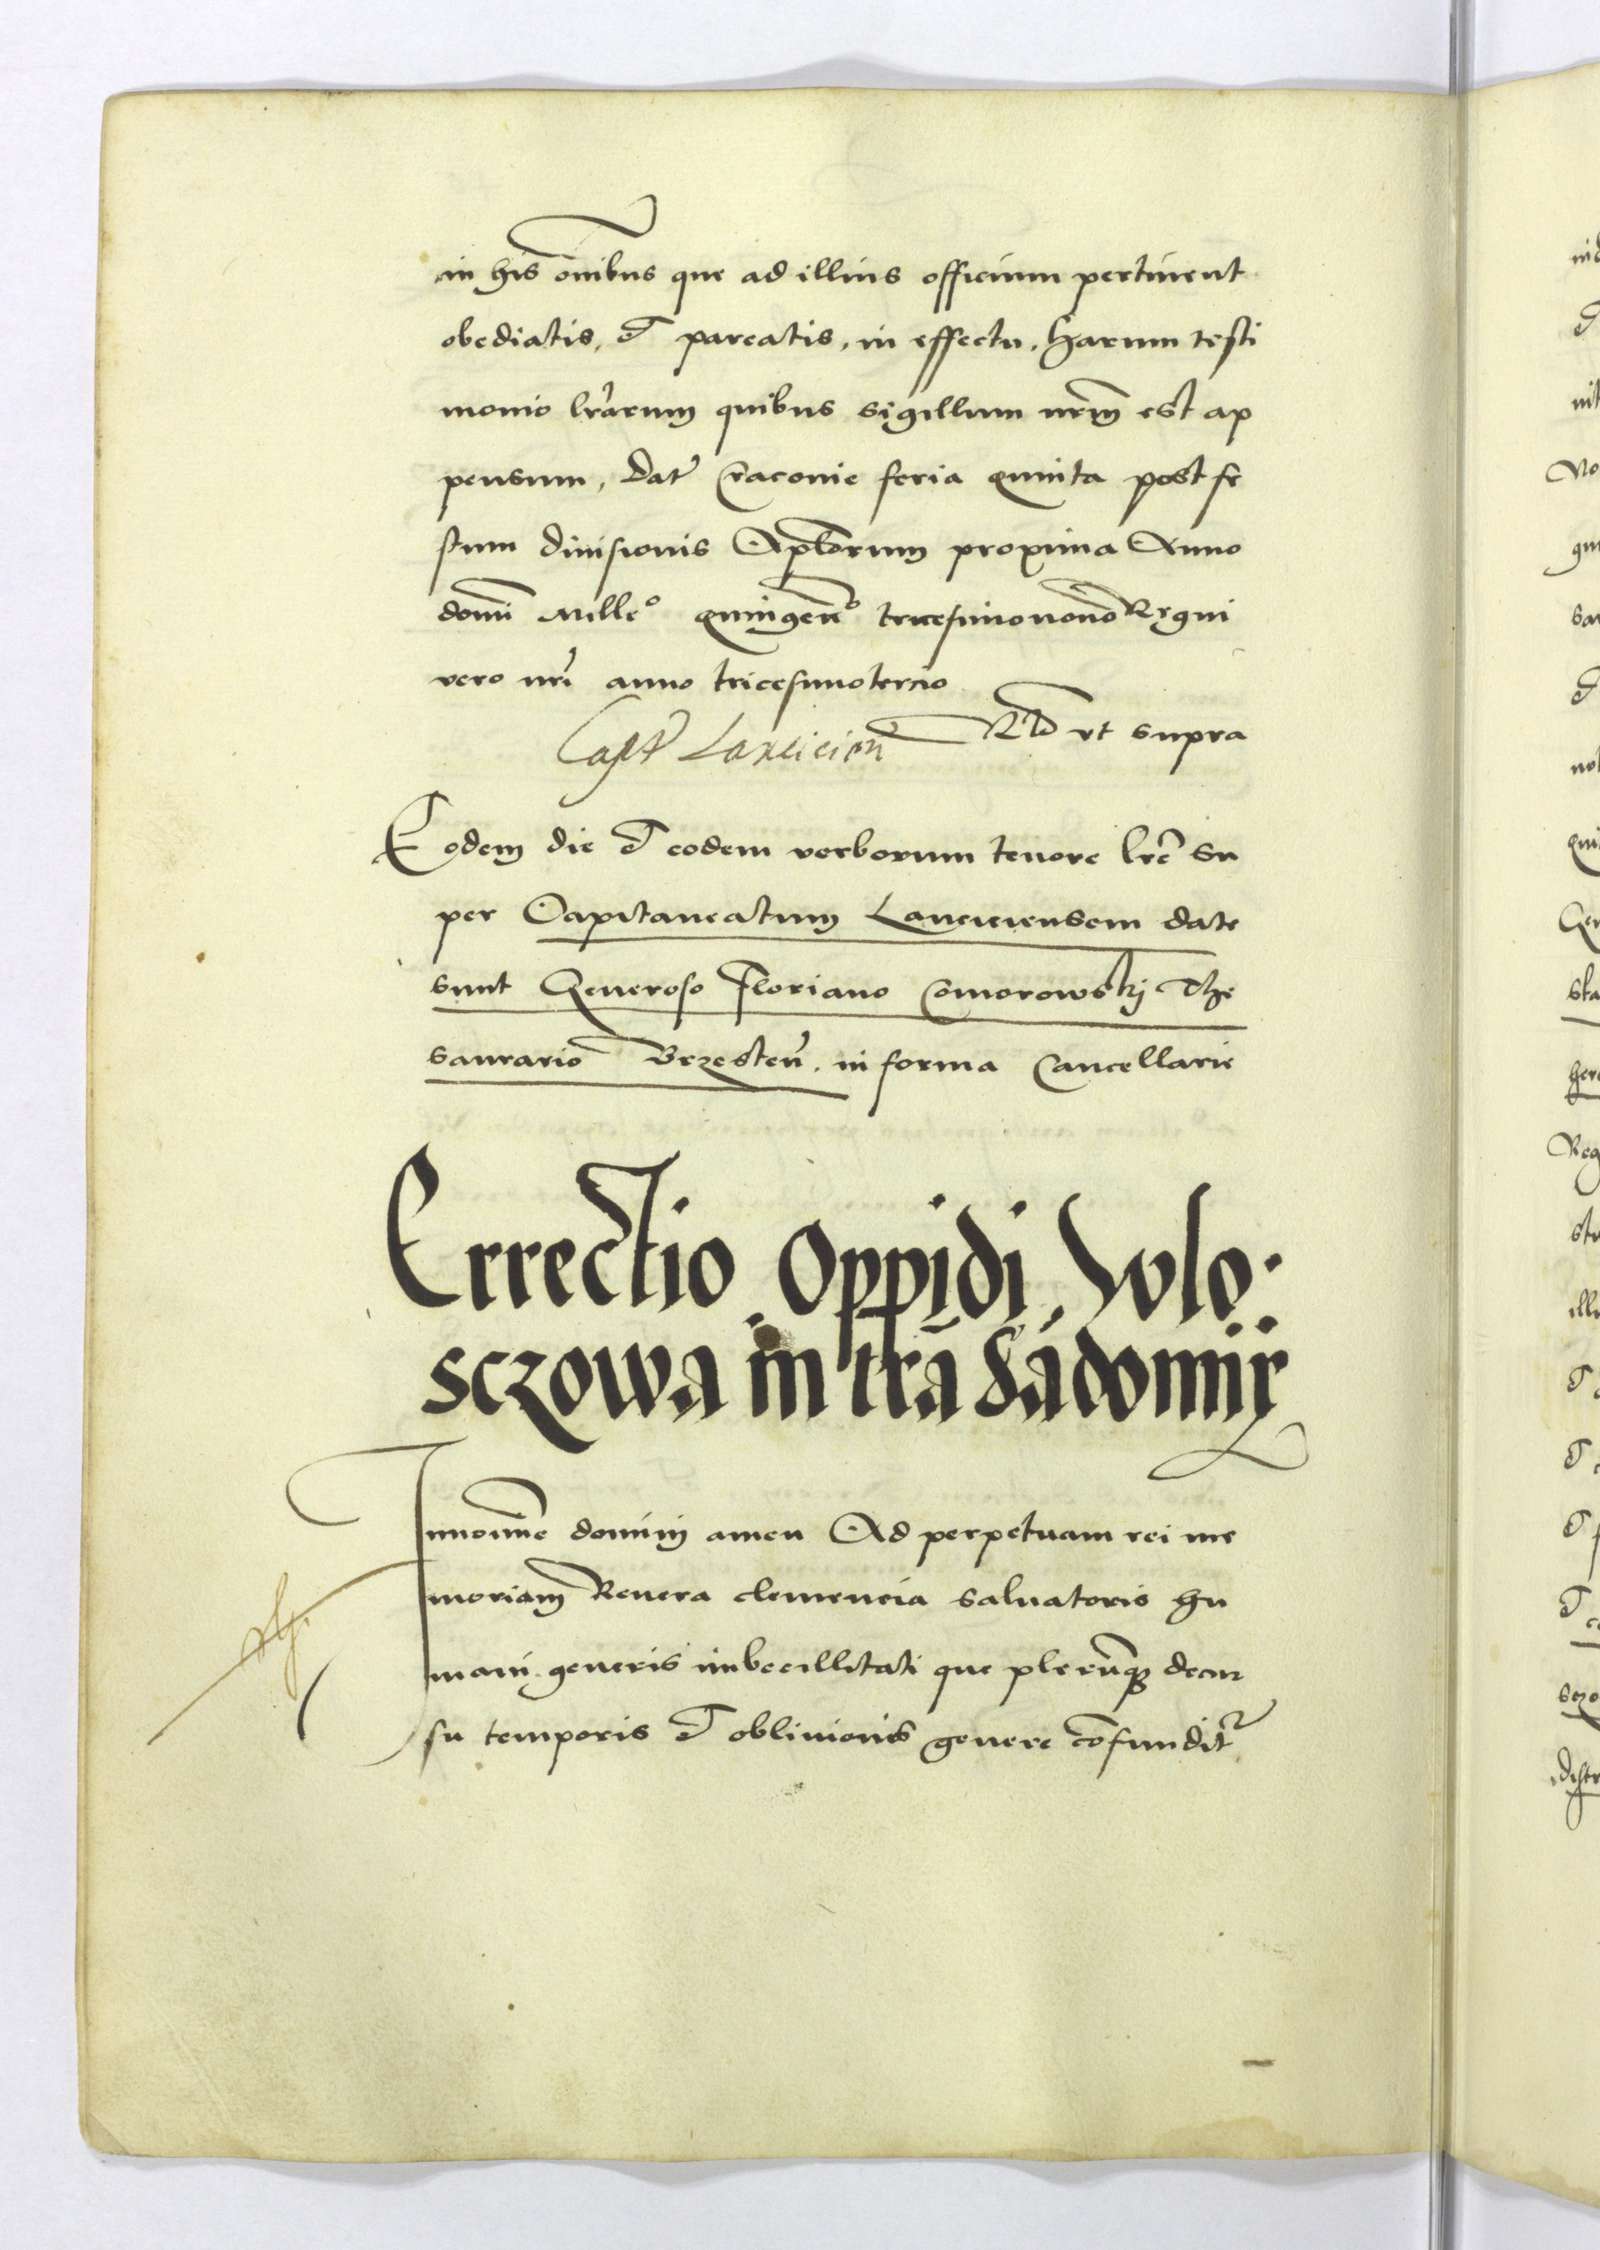 in his om̄ibus que ad illius officium pertinent
obediatis, et pareatis, in effectu, harum testi
monio lr̄arum quibus sigillum nr̄m est ap
pensum, Dat̄ Cracouie feria quinta post fe
stum diuisionis Ap̄lorum proxima Anno
domī Milleº quingen̄º tricesimonono Regni
vero nr̄i anno tricesimotercio
Rtō vt supra
Capt̄ Lancicien̄
Eodem die et eodem verborum tenore lr̄e su
per Capitaneatum Lanciciensem date
sunt Generoso Floriano Comorowskij The
saurario Brzesten̄. in forma Cancellarie
Errectio Oppidi Vlo.
sczowa in tr̄a Sádomir̄
In nom̄ine domini amen Ad perpetuam rei me
moriam Reuera clemencia saluatoris hu
mani generis imbecillitati que plerūq; decur
su temporis et obliuionis genere cōfundit̄